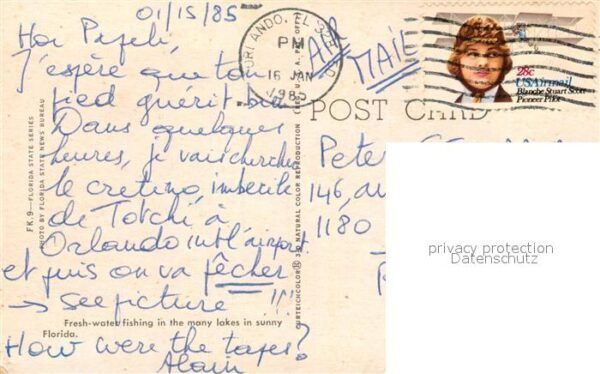 01/15/85
Hoi Papeli,
J'espère que ton
pied guérit bien
Dans quelques
heures, je vais chercher
le cretino imbecile
de Totchi à
Orlando int'l airport
et puis on va pêcher
→ see picture !!!
Fresh-water fishing in the many lakes in sunny
Florida.
How were the tapes?
Alain
FK.9—FLORIDA STATE SERIES
PHOTO BY FLORIDA STATE NEWS BUREAU
ORLANDO, FL
PM
16 JAN
1985
AIR
MAIL
28c
USAirmail
Blanche Stuart Scott
Pioneer Pilot
POST CARD
CURTEICHCOLOR® 3D NATURAL COLOR REPRODUCTION
Peter
146, av
1180
privacy protection
Datenschutz